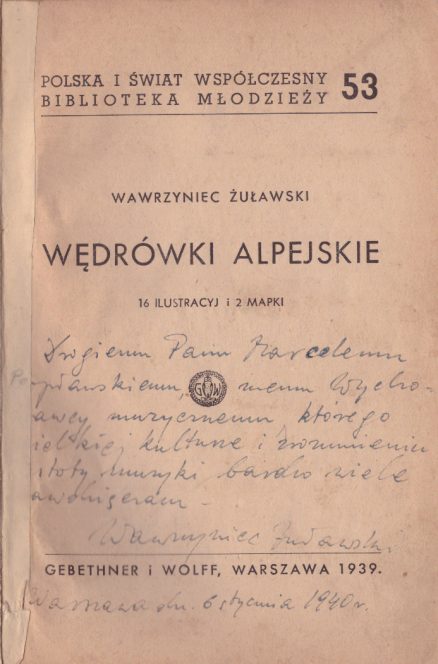 POLSKA I ŚWIAT WSPÓŁCZESNY
BIBLIOTEKA MŁODZIEŻY 53
WAWRZYNIEC ŻUŁAWSKI
WĘDRÓWKI ALPEJSKIE
16 ILUSTRACYJ i 2 MAPKI
Drogiemu Panu Marcelemu
memu Wycho-
awcy muzycznemu, którego
ielkiej kulturze i zrozumieniu
stoty muzyki bardzo wiele
GW
Wawrzyniec Żuławski
GEBETHNER i WOLFF, WARSZAWA 1939.
Warszawa dn. 6 stycznia 1940 r.